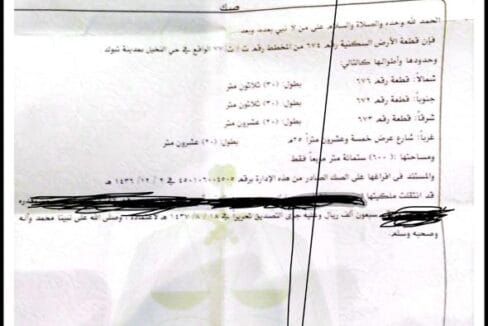 صك
الحمد لله وحده والصلاة والسلام على من لا نبي بعده، وبعد
فإن قطعة الأرض السكنية رقم ٦٧٤ من المخطط رقم ت / ث/ ٧٧ الواقع في حي النخيل بمدينة تبوك
وحدودها وأطوالها كالتالي:
شمالاً: قطعة رقم ٦٧٦ بطول: (٣٠) ثلاثون متر
جنوباً: قطعة رقم ٦٧٢ بطول: (٣٠) ثلاثون متر
شرقاً: قطعة رقم ٦٧٣ بطول: (٢٠) عشرون متر
غرباً: شارع عرض خمسة وعشرون متراً ٢٥م بطول: (٢٠) عشرون متر
ومساحتها: (٦٠٠) ستمائة متر مربعاً فقط
والمستند في افراغها على الصك الصادر من هذه الإدارة برقم ٤٥٠١٠٦٠٠٤٥٠٥ في ٢ / ١٢ / ١٤٣٦ هـ
قد انتقلت ملكيتها
سبعون ألف ريال وعليه جرى التصديق تحريراً في ١٨ / ٨ / ١٤٣٧ هـ لاعتماده ، وصلى الله على نبينا محمد وآله
وصحبه وسلم.